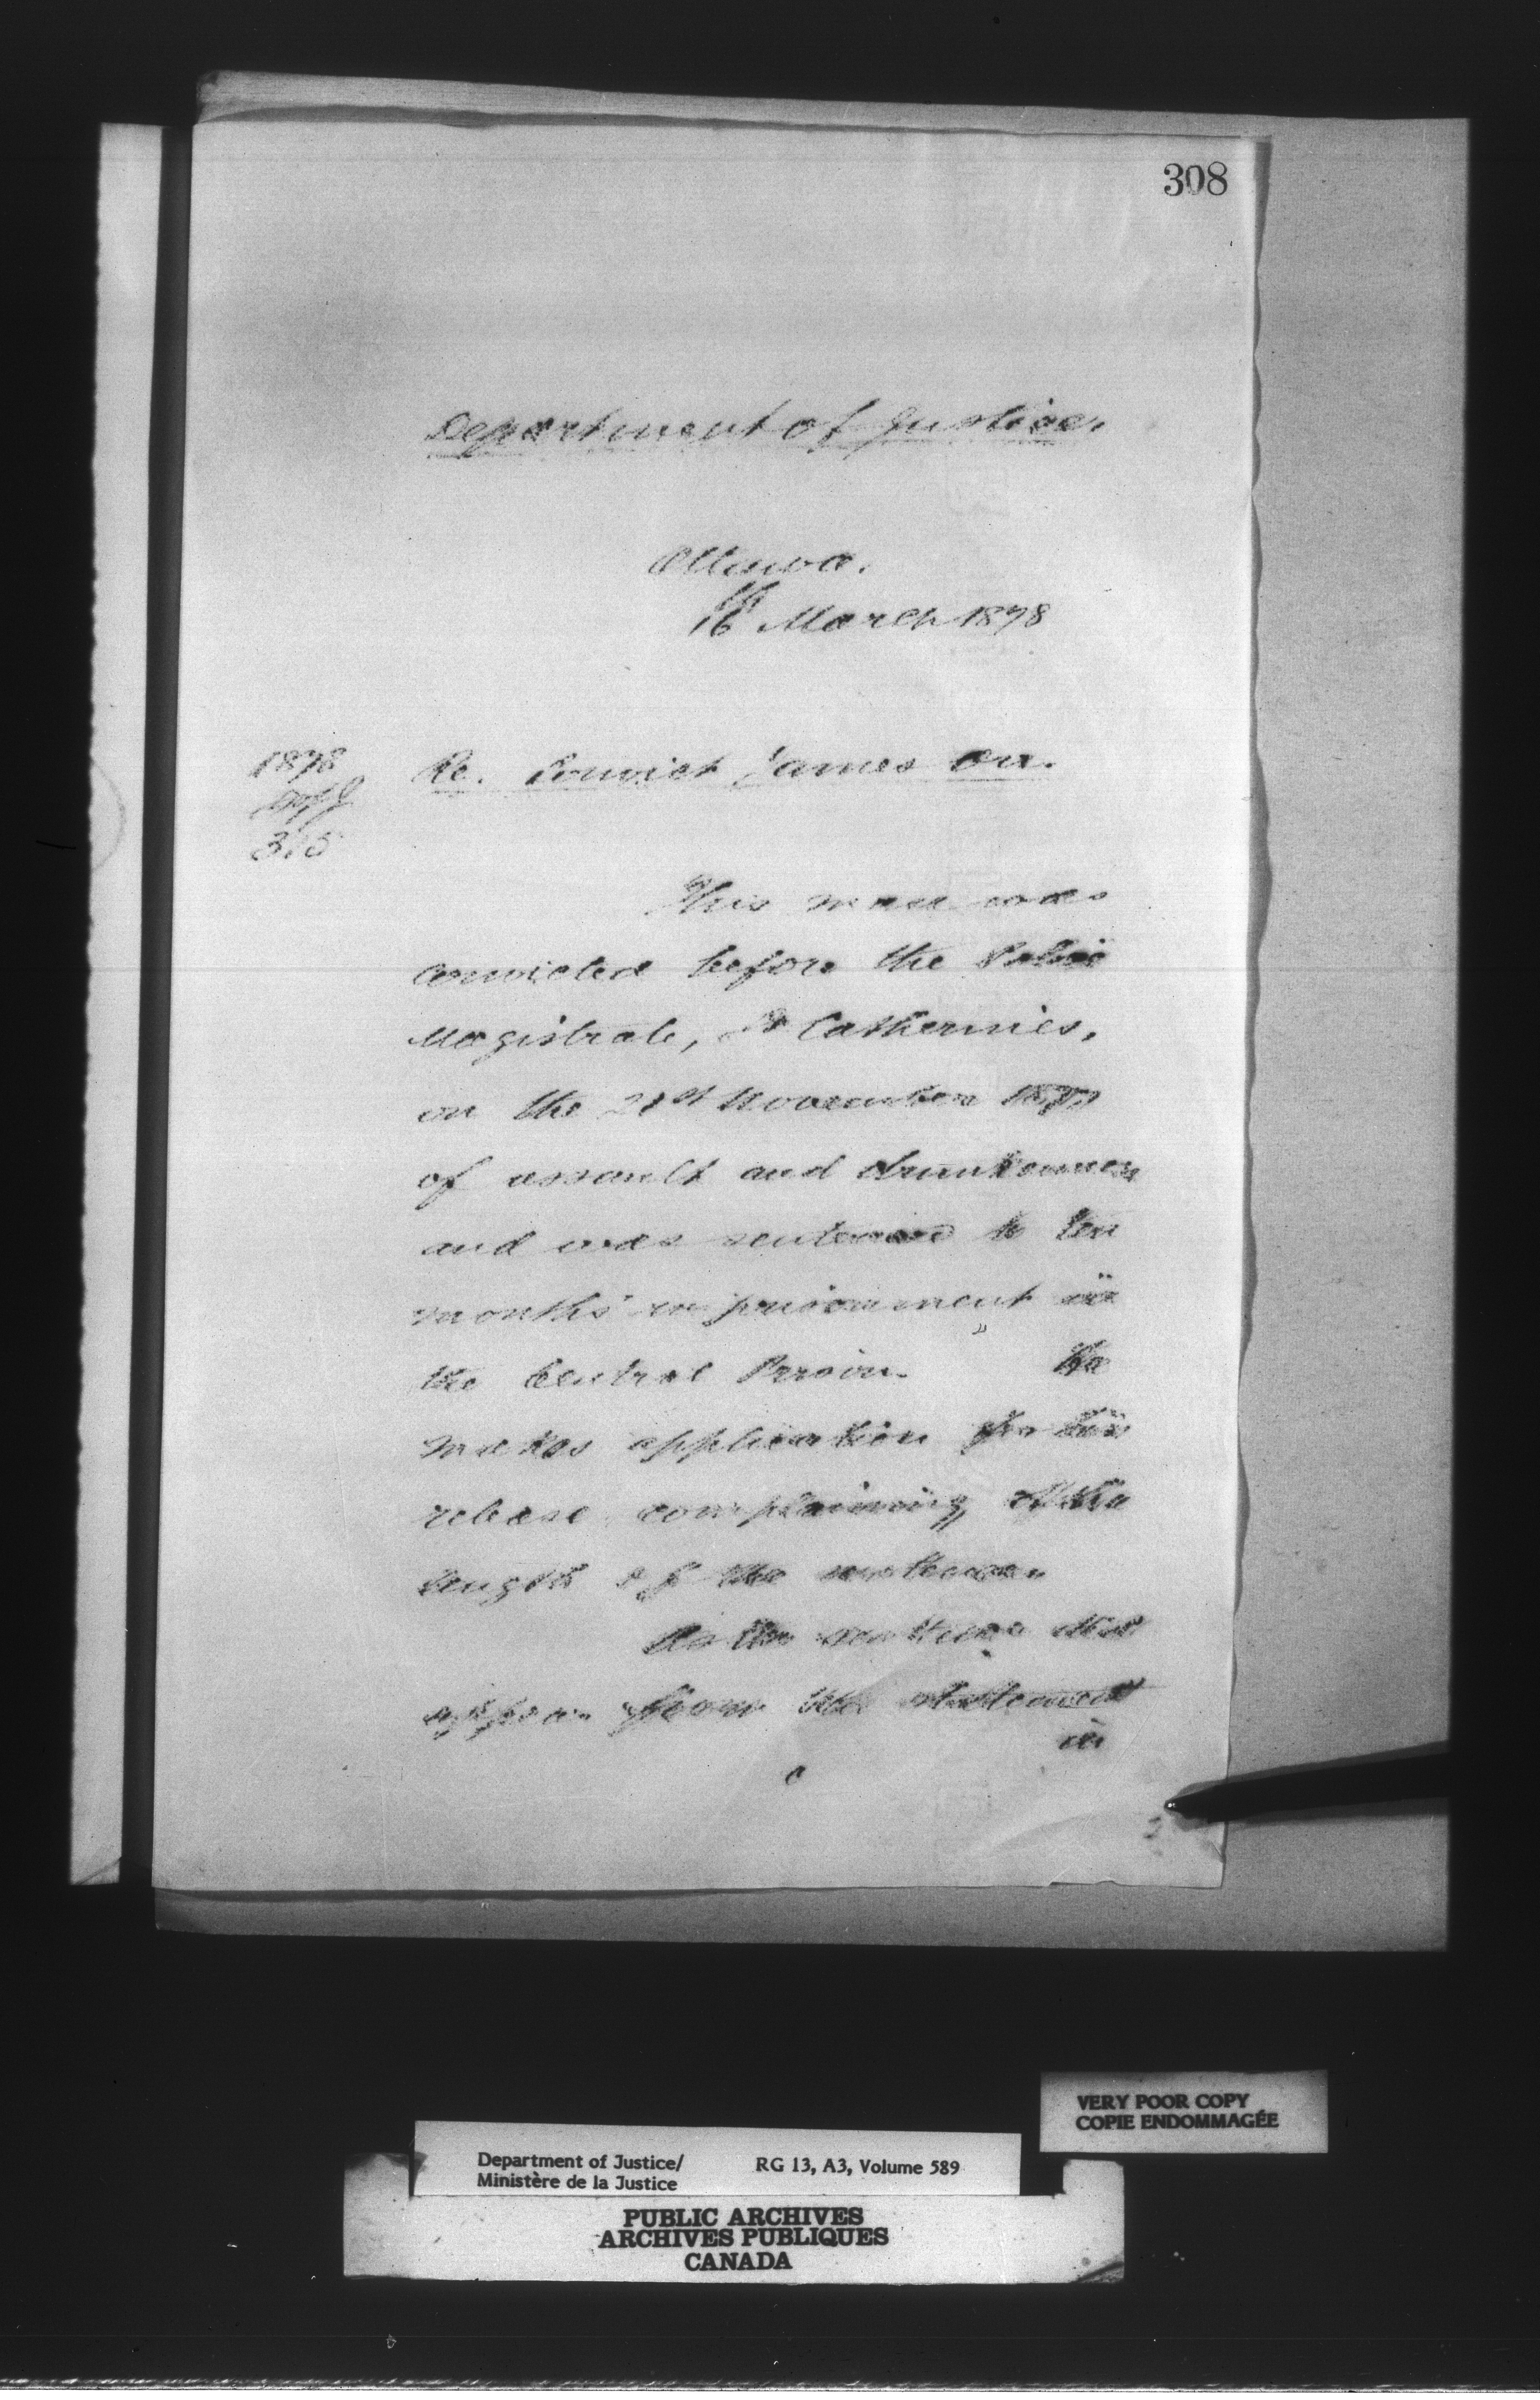 308
Department of Justice.
Ottawa.
16th March 1878
1878
315
Re. Convict James Orr.
This man was
convicted before the Police
Magistrate, St Catherines,
on the 21st November 1877
of assault and drunkenness
and was sentenced to ten
months' imprisonment in
the Central Prison. He
makes application for his
release complaining of the
length of the sentence.
As the sentence did
appear from the statement
in
VERY POOR COPY
COPIE ENDOMMAGÉE
Department of Justice/
Ministère de la Justice
RG 13, A3, Volume 589
PUBLIC ARCHIVES
ARCHIVES PUBLIQUES
CANADA